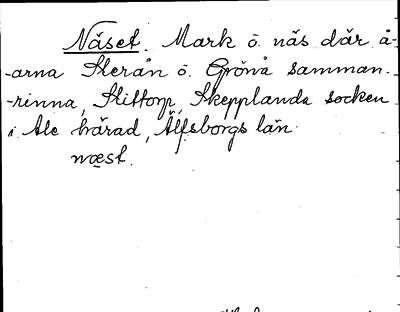 Näset. Mark o. näs där å-
-arna Sterån o. Grönå samman-
-rinna, Stittorp, Skepplanda socken
i Ale härad, Älfsborgs län.
næst.